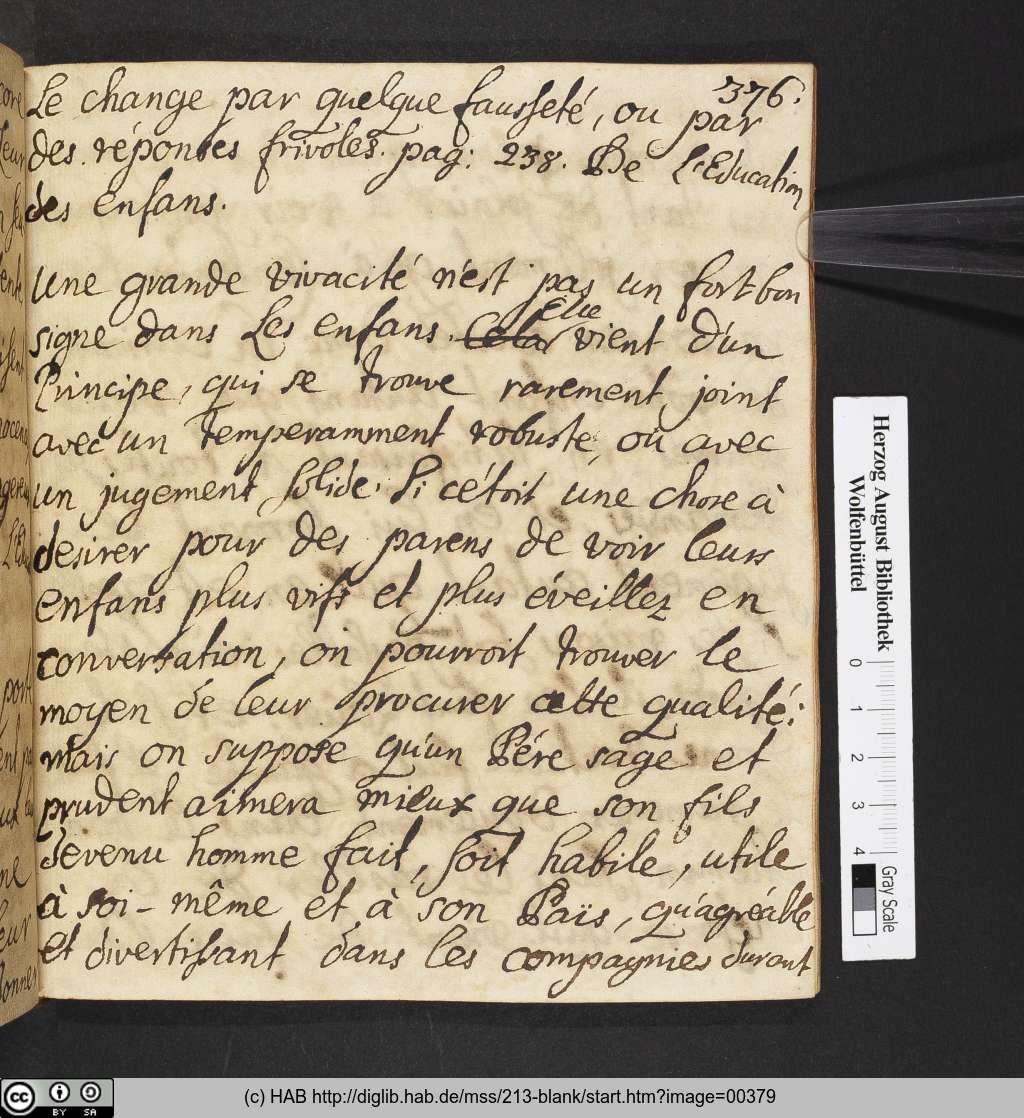 376.
Le change par quelque fausseté, ou par
des réponses frivoles. pag: 238. De l'Education
des enfans.
Une grande vivacité n'est pas un fort bon
signe dans Les enfans. Cela Elle vient d'un
Principe, qui se trouve rarement joint
avec un Temperamment robuste, ou avec
un jugement solide. Si c'étoit une chose à
desirer pour des parens de voir leurs
enfans plus vifs et plus éveillez en
conversation, on pourroit trouver le
moyen de leur procurer cette qualité:
mais on suppose qu'un Pére sage et
prudent aimera mieux que son fils
devenu homme fait, soit habile, utile
à soi-même et à son Païs, qu'agréable
et divertissant dans les compagnies durant
Herzog August Bibliothek
Wolfenbüttel
0 1 2 3 4
Gray Scale
cc BY SA
(c) HAB http://diglib.hab.de/mss/213-blank/start.htm?image=00379